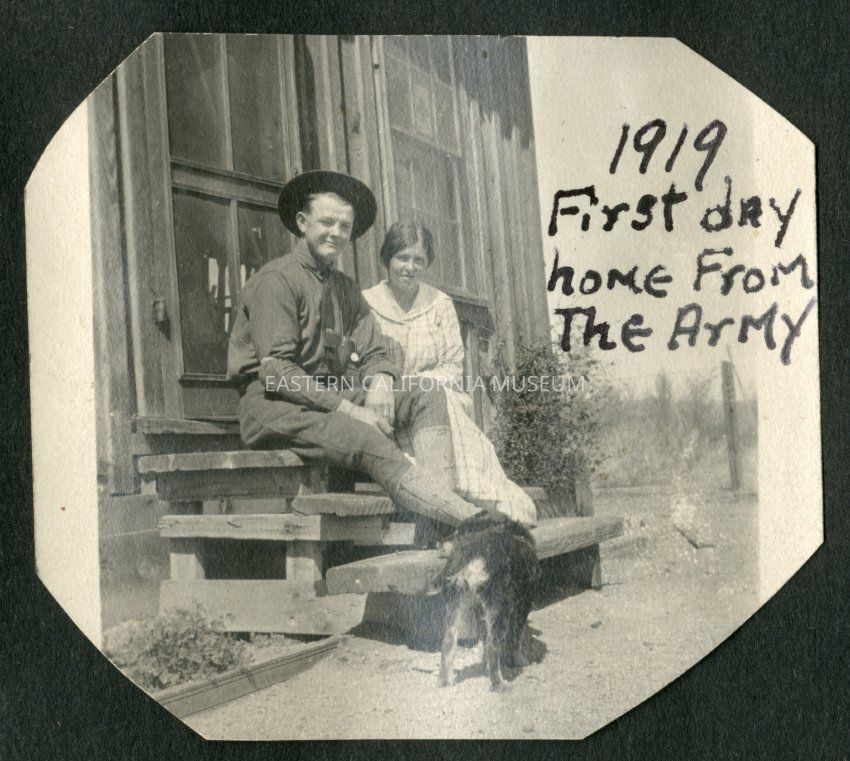 1919
First day
home From
The Army
EASTERN CALIFORNIA MUSEUM